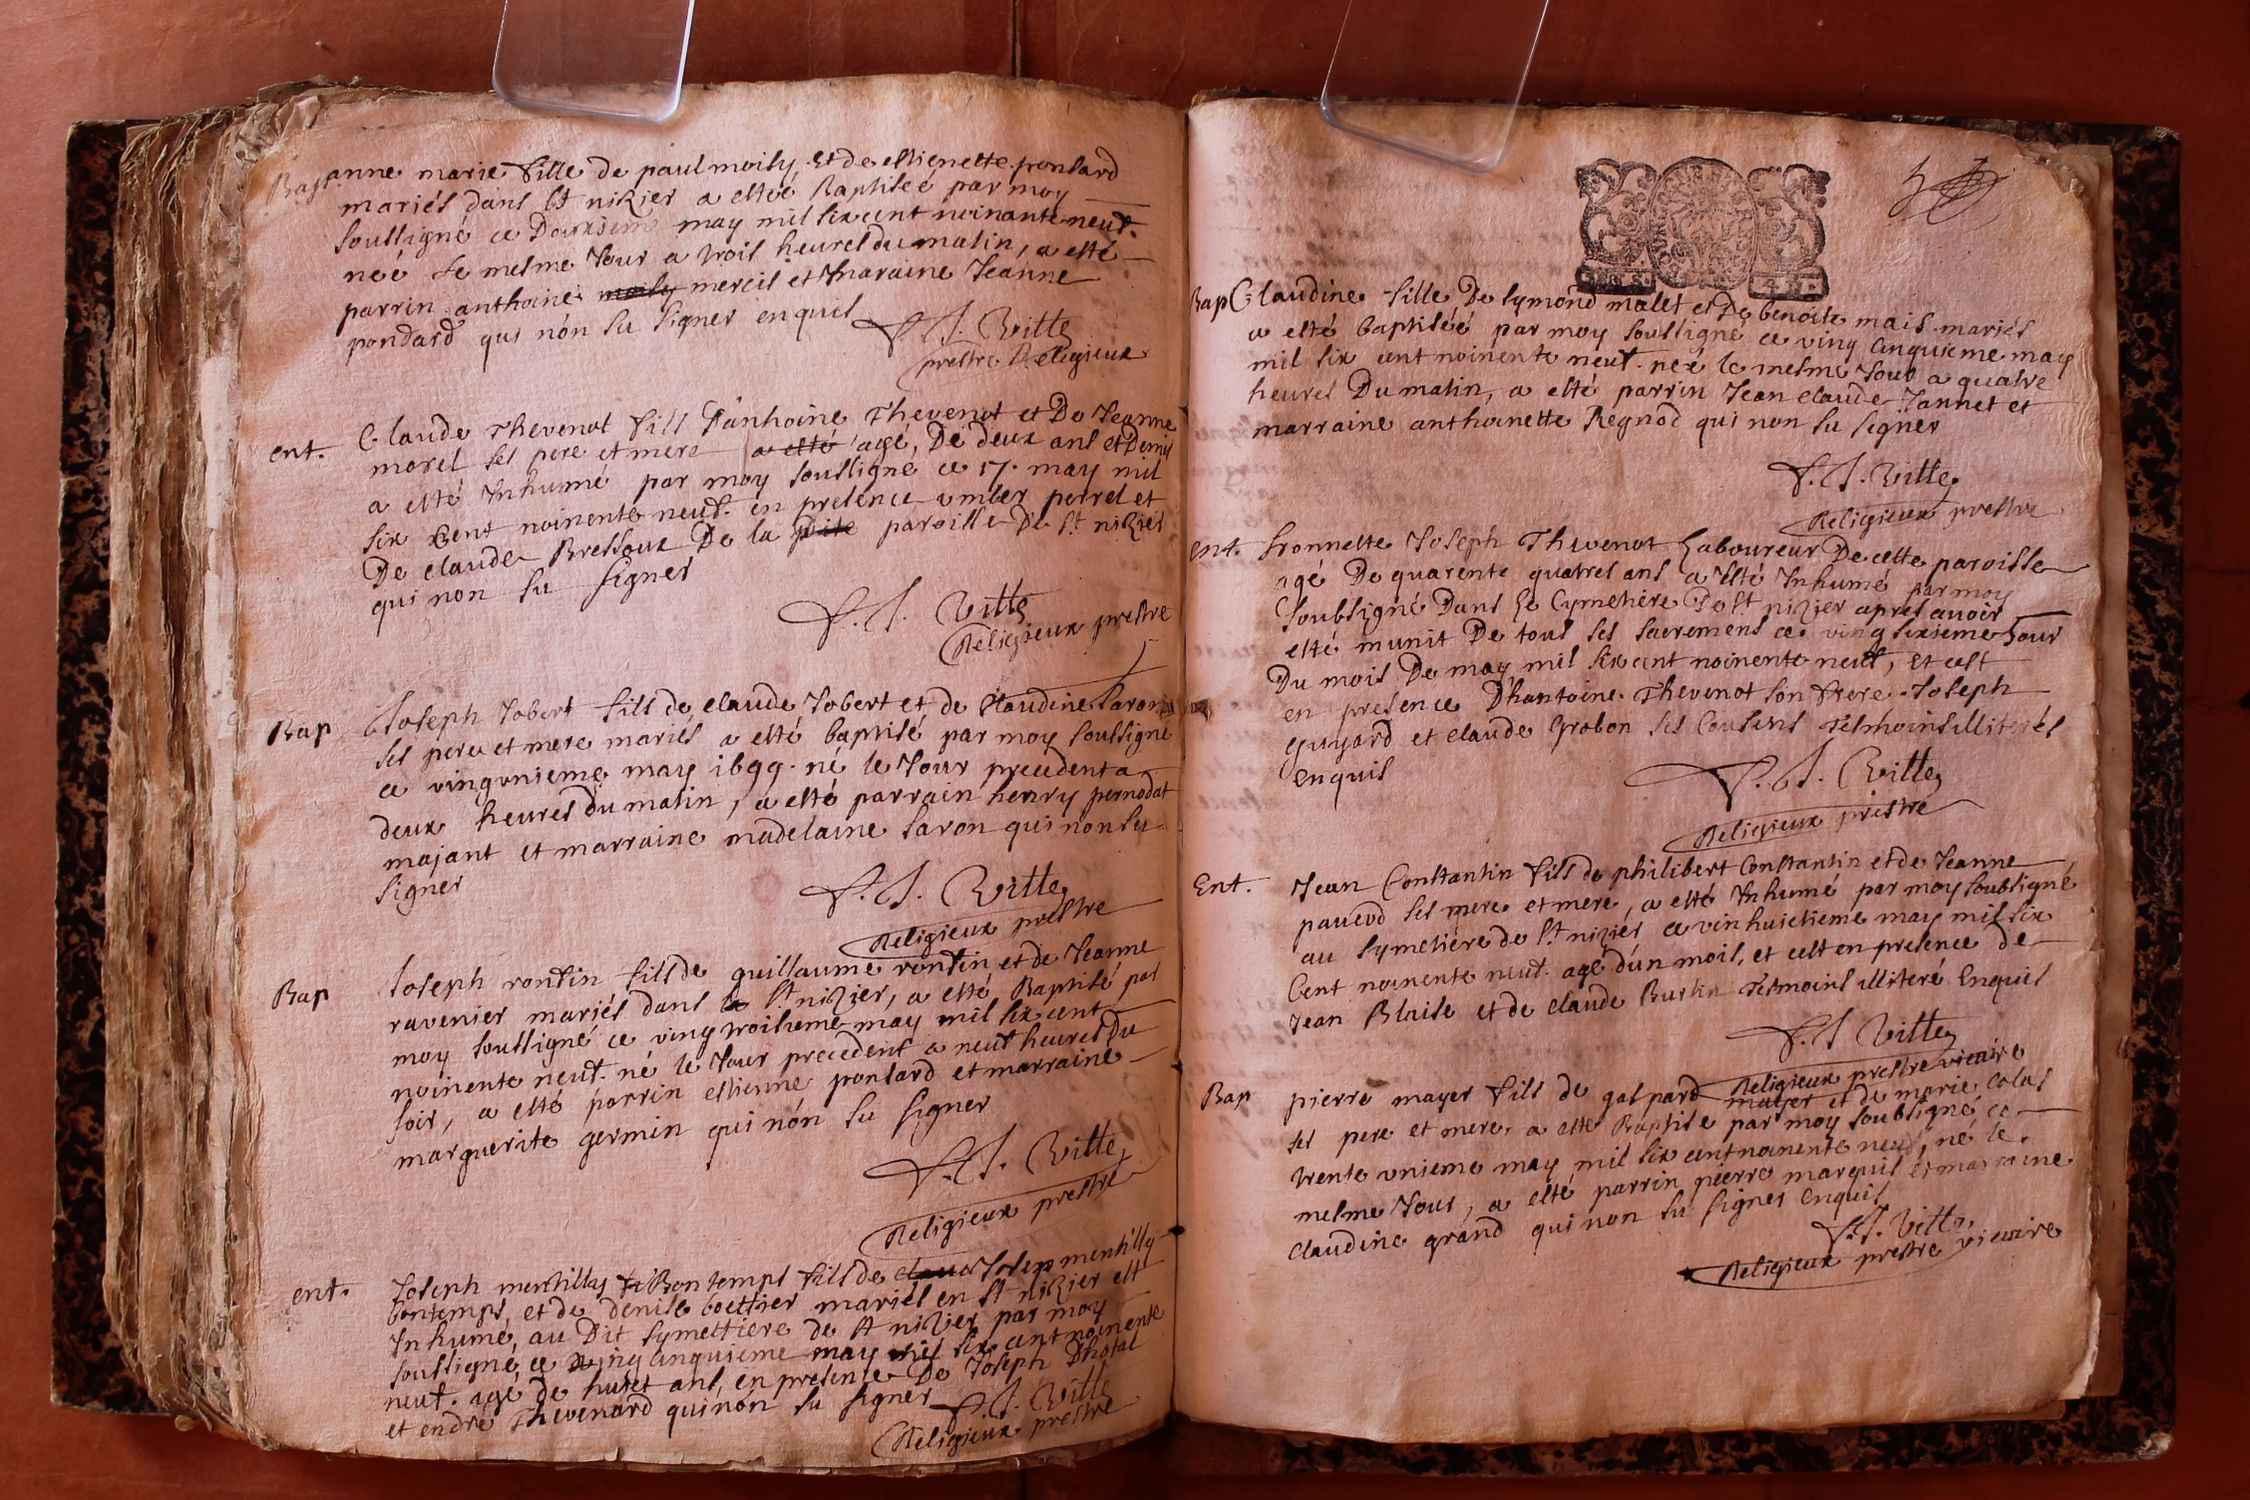 Bap. anne marie fille de paul moisy et de estienette ponsard
mariés dans st nizier a estéé Baptiseé par moy
soussigné ce may mil six cent noinante neuf.
neé le mesme Jour a trois heures du matin, a esté
parrin anthoine mercil et maraine Jeanne
pondard qui nón su signer enquis
f. J. Vitte
prestre Religieux
ent. Claude Thevenot fils D'anhoine Thevenot et De Jeanne
morel ses pere et mere a esté agé, De deux ans et Demy
a esté Inhumé par moy soussigné ce 17. may mil
six Cent noinente neuf. en presence umber perrel et
De claude Bressoux De la paroisse De St. nizier
qui non su signer
f. J. Vitte
Religieux prestre
Bap Joseph Jobert fils de claude Jobert et de Claudine
ses pere et mere mariés a esté baptisé par moy soussigné
ce vingunieme may 1699. né le Jour precedent a
deux heures du matin, a esté parrain henry pernodat
majant et marraine madelaine saron qui non su
signer
f. J. Vitte
Religieux prestre
Bap Joseph ronfin fils de guillaume ronfin et de Jeanne
ravenier mariés dans st nizier, a esté Baptisé par
moy soussigné ce ving troisieme may mil six cent
noinente neuf. né le Jour precedent a neuf heures Du
soir, a esté parrin estienne ponsard et marraine
marguerite germin qui nón su signer
f. J. Vitte
Religieux prestre
ent. Joseph mentilly Bontemps fils de Josep mentilly
bontemps, et de denise boettier mariés en st nizier est
Inhumé, au Dit symettiere de st nizier par moy
soussigné, ce ving cinquieme may mil six cent noinente
neuf. agé de huict ans, en presence De Joseph Dhotal
et endré Thevenard qui nón su signer
f. J. Vitte
Religieux prestre
Bap Claudine fille De symond malet et De benoite mais mariés
a esté baptiséé par moy soussigné ce ving cinquieme may
mil six cent noinente neuf. neé le mesme Jour a quatre
heures Du matin, a esté parrin Jean claude Jannet et
marraine anthoinette Regnod qui non su signer
f. J. Vitte
Religieux prestre
ent. honnette Joseph Thevenot Laboureur De cette paroisse
agé De quarente quatres ans a esté Inhumé par moy
soubsigné Dans Le Cymetière De st nizier apres avoir
esté munit De tous ses sacremens ce ving sixieme Jour
Du mois De may mil six cent noinente neuf, et cest
en presence D'hantoine Thevenot son frere Joseph
guyard et claude grobon ses Cousins tesmoins illiterés
enquis
f. J. Vitte
Religieux prestre
Ent. Jean Constantin fils de philibert Constantin et de Jeanne
ses mere et mere, a esté Inhumé par moy soubsigné
au symetière de st nizier ce vin huictieme may mil six
Cent noinente neuf. agé dún mois, et cest en presence de
Jean Blaise et de claude Burtin tesmoins illiteré Enquis
f. J Vitte
Religieux prestre vicaire
Bap pierre mayer fils de gaspard mayer et de marie Colas
ses pere et mere a esté Baptisé par moy soubsigné ce
trente unieme may mil six cent noinente neuf, né le
mesme Jour, a esté parrin pierre marquis et marraine
claudine grand qui non su signer enquis
f. J. Vitte
Religieux prestre vicaire